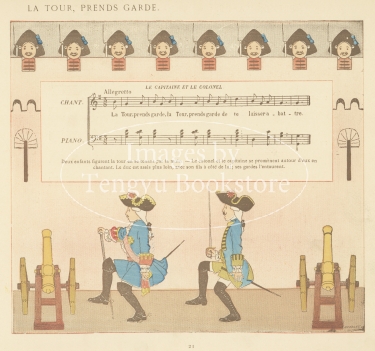 LA TOUR, PRENDS GARDE.
LE CAPITAINE ET LE COLONEL
Allegretto
CHANT.
La Tour, prends garde, la Tour, prends garde de te laisser a_bat_tre.
PIANO.
Deux enfants figurent la tour en se
chantant. Le duc est assis plus loin, son fils à côté de lui; ses gardes l'entourent.
Images by
Tengyu Bookstore